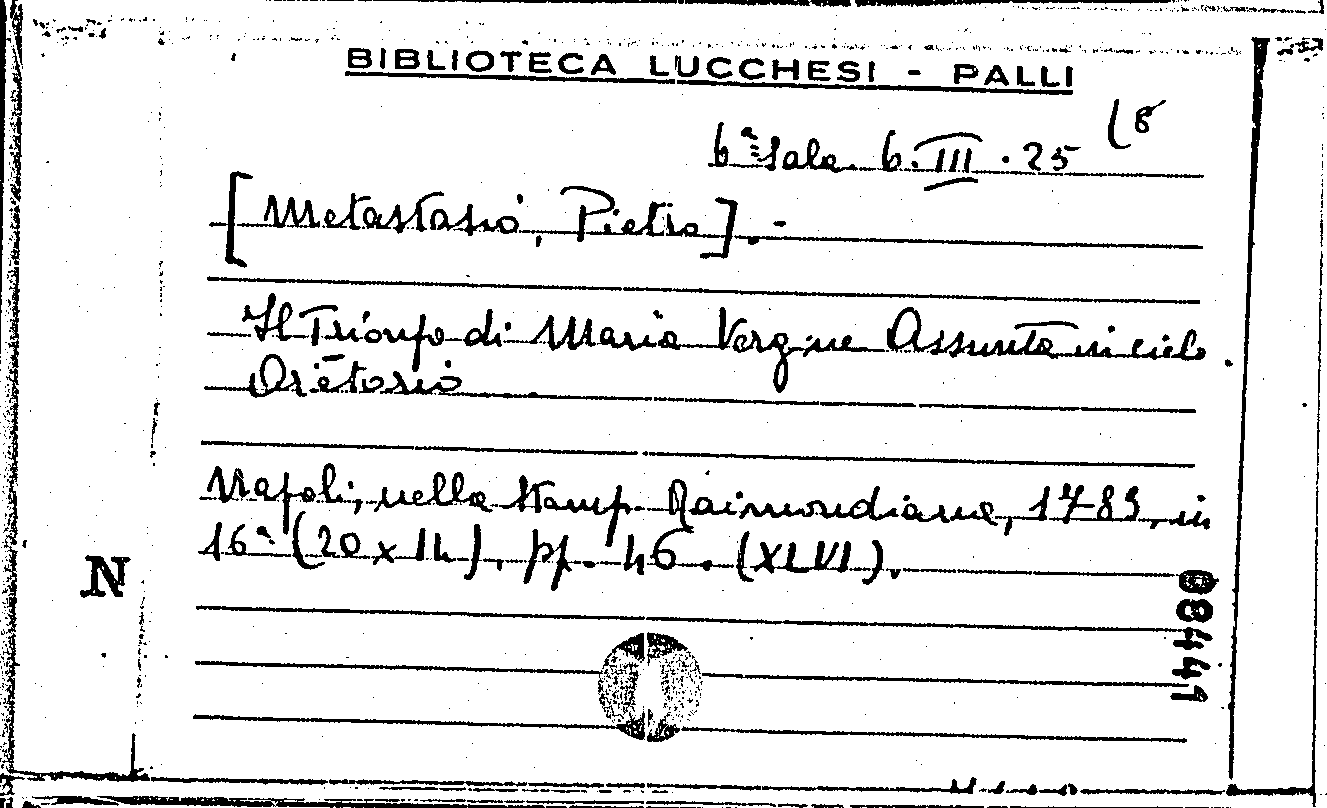 BIBLIOTECA LUCCHESI - PALLI
6ª Sala. 6. III. 25 (8
[Metastasio, Pietro]. -
Il Trionfo di Maria Vergine Assunta in cielo.
Oratorio
Napoli, nella Stamp. Raimondiana, 1789, in
16° (20 x 14), pp. 46. (XLVI).
N
08441